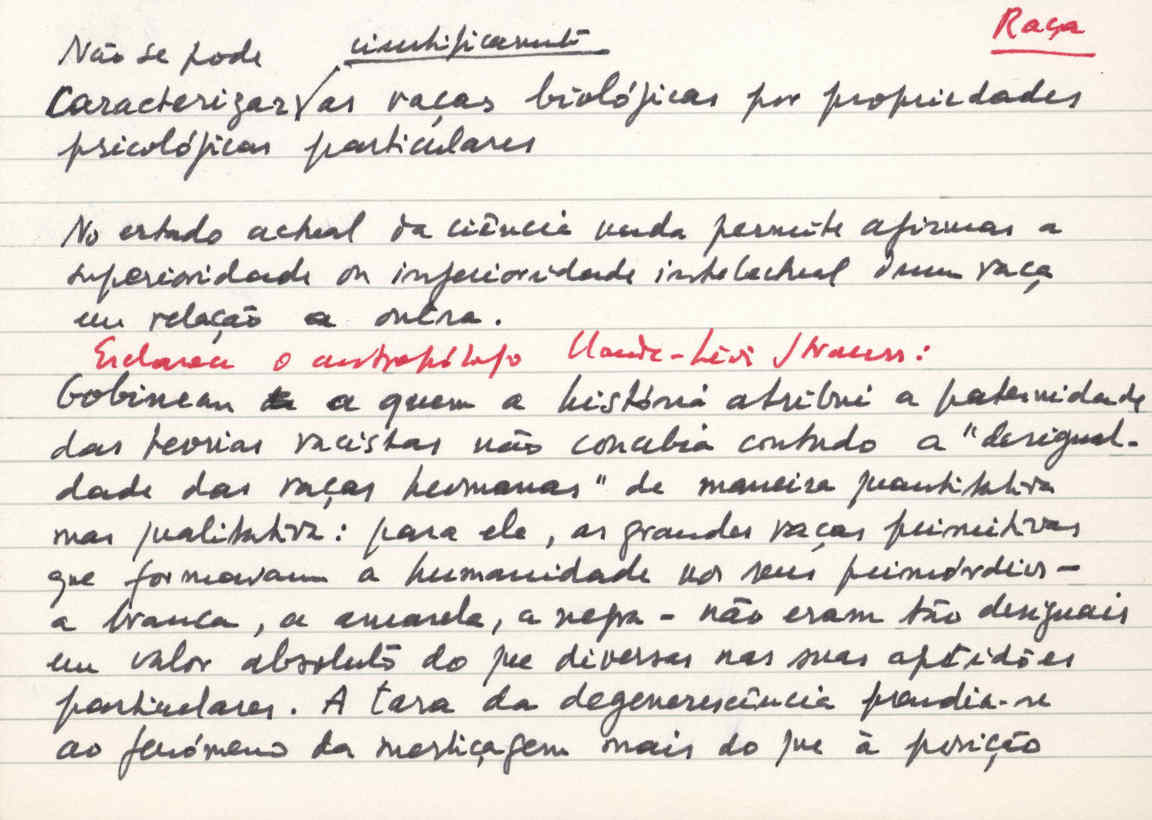 Raça
Não se pode cientificamente
Caracterizar as raças biológicas por propriedades
psicológicas particulares
No estado actual da ciência nada permite afirmar a
superioridade ou inferioridade intelectual duma raça
em relação a outra.
Esclareceu o antropólogo Claude-Lévi Strauss:
Gobineau a quem a história atribui a paternidade
das teorias racistas não concebia contudo a "desigual-
dade das raças humanas" de maneira quantitativa
mas qualitativa: para ele, as grandes raças primitivas
que formavam a humanidade nos seus primórdios -
a branca, a amarela, a negra - não eram tão desiguais
em valor absoluto do que diversas nas suas aptidões
particulares. A tara da degenerescência prendia-se
ao fenómeno da mestiçagem mais do que à posição